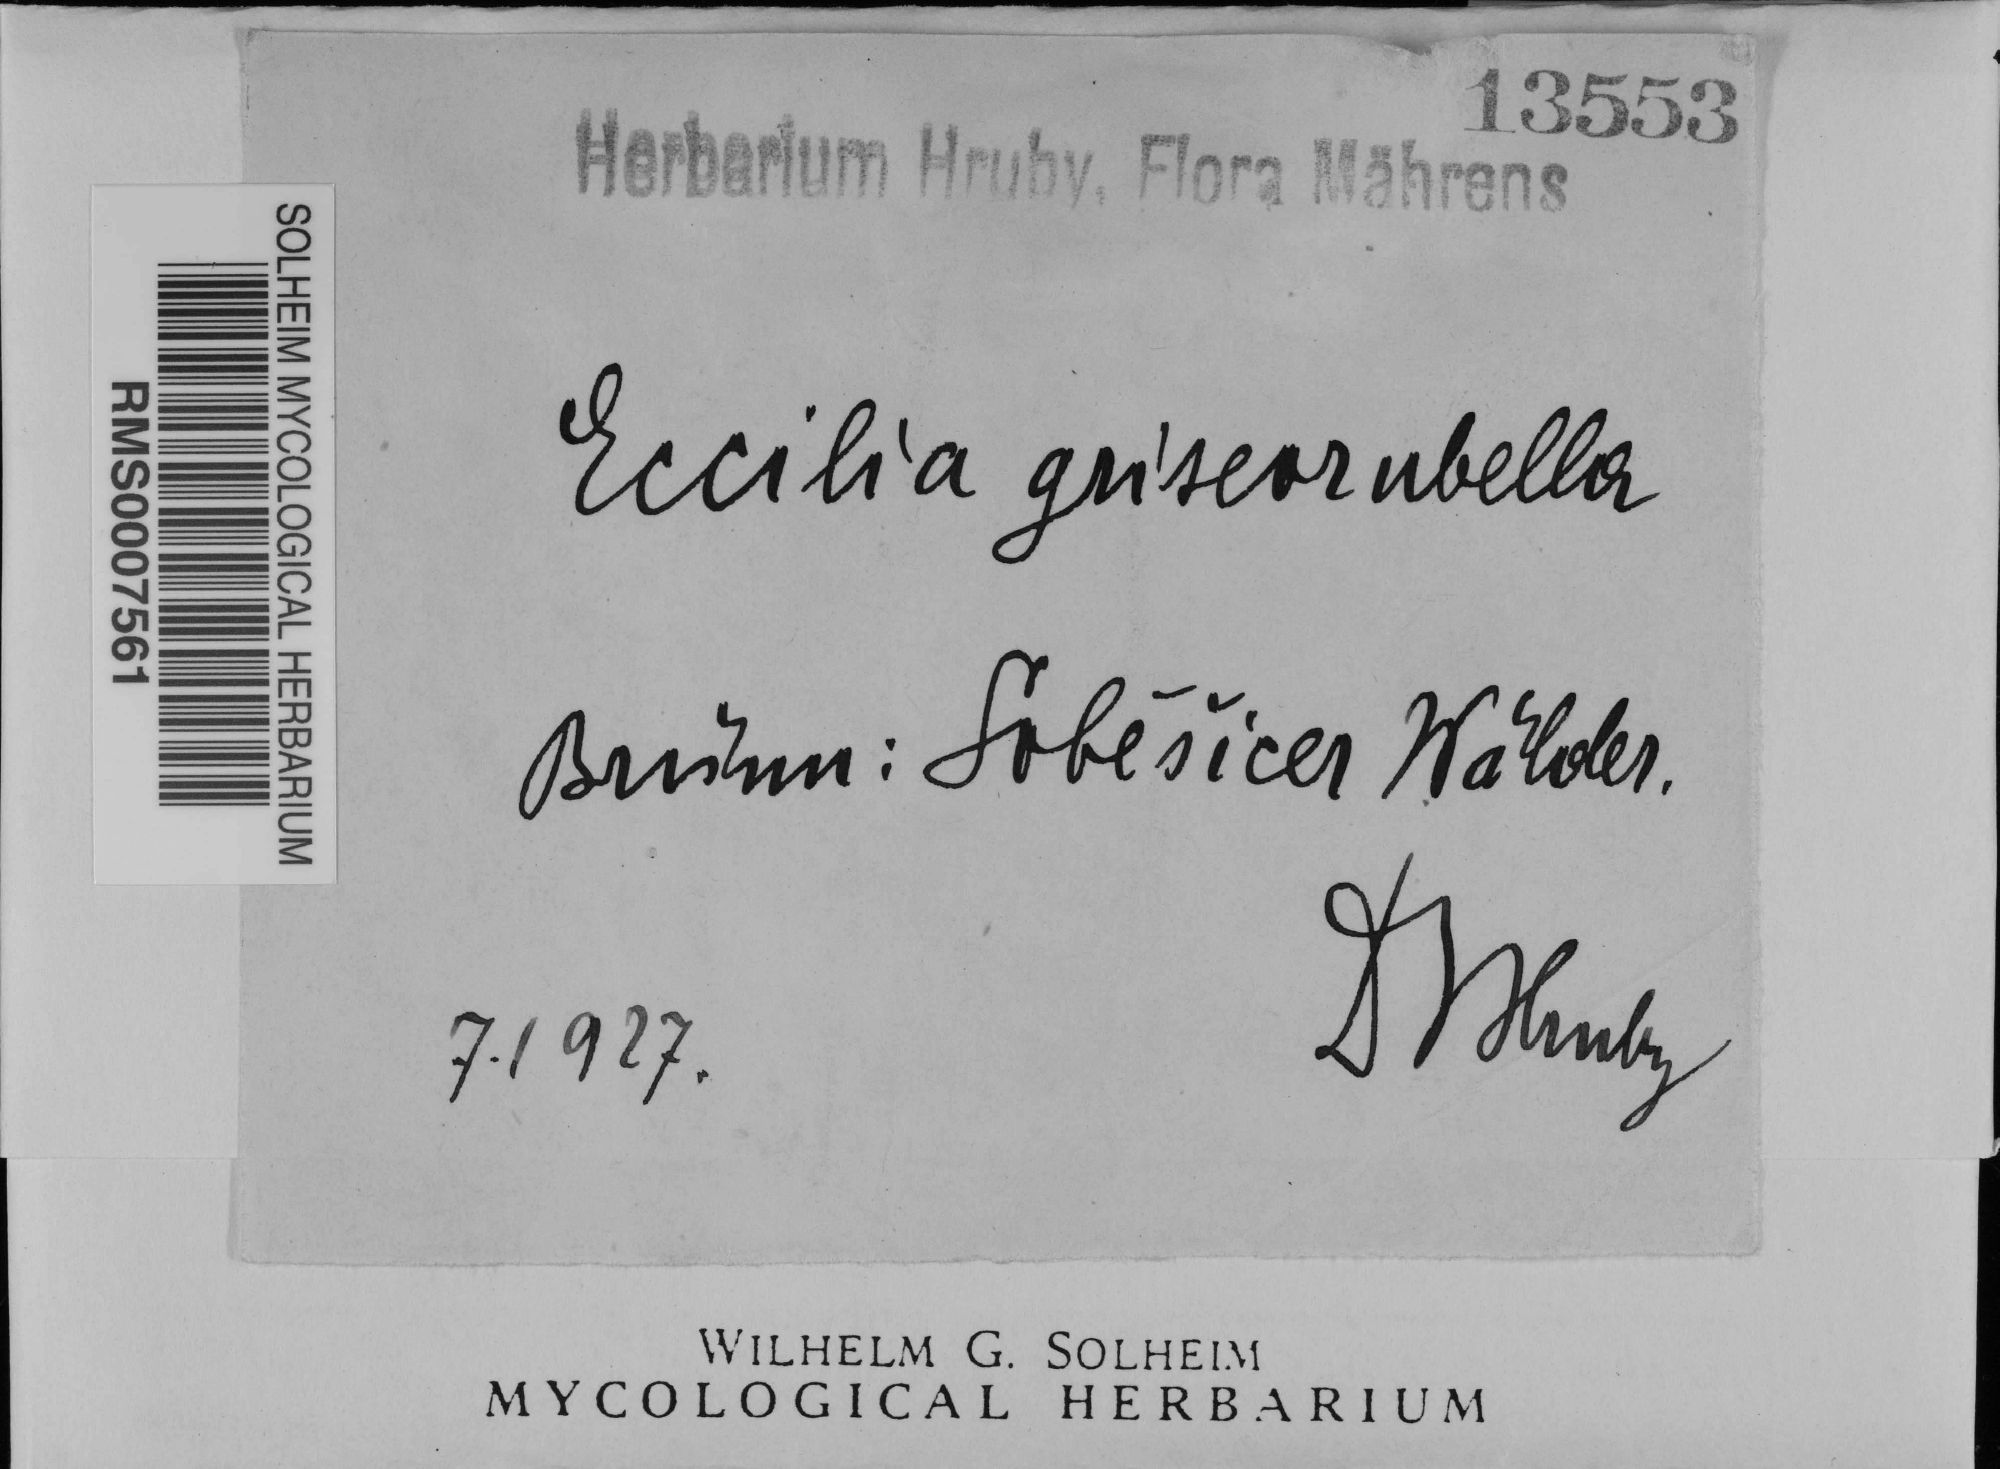 13553
Herbarium Hruby, Flora Mährens
Eccilia griseorubella
Brünn: Soběšicer Wälder.
Hruby
7.1927.
SOLHEIM MYCOLOGICAL HERBARIUM
RMS0007561
WILHELM G. SOLHEIM
MYCOLOGICAL HERBARIUM